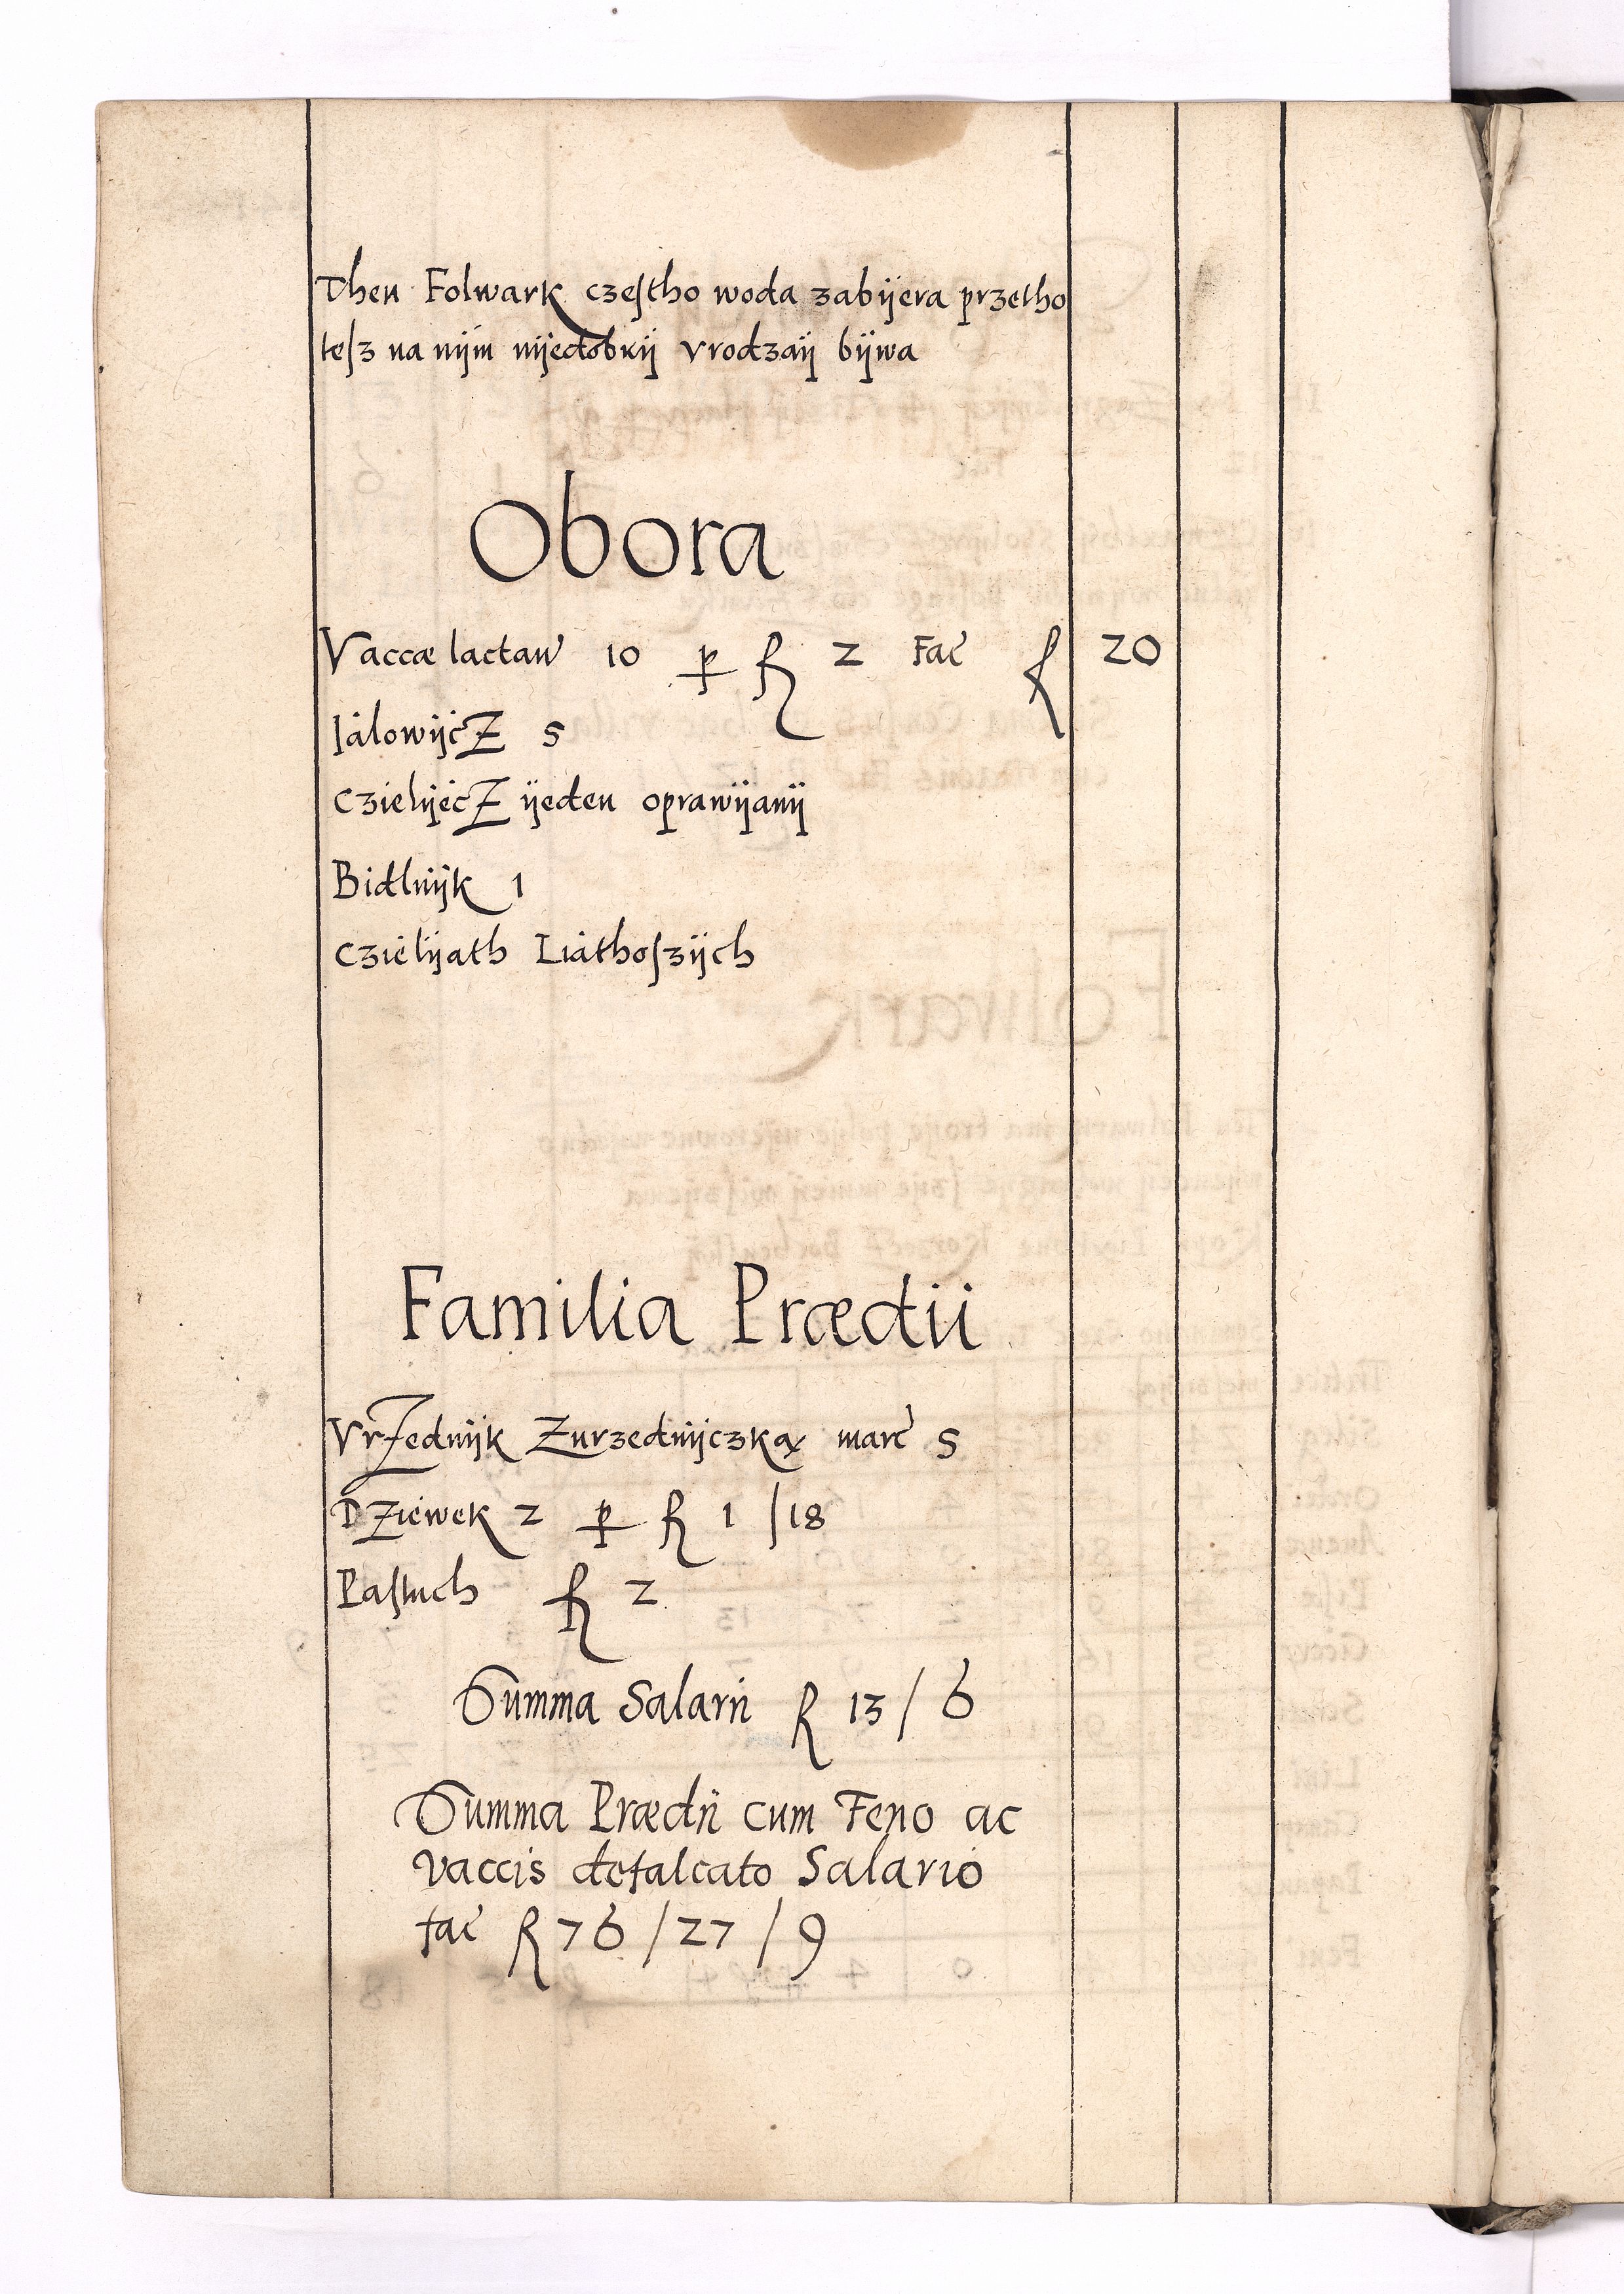 Then Folwark czesthо woda zabijera przetho
tesz na nijm nijedobrij vrodzaij bijwa
Obora
Vaccæ lactan 10 p fl 2 Fac fl 20
Jalowijcz 5
Czielijecz ijeden oprawijanij
Bidlnijk 1
Czielijath Liathoszijch
Familia Prædii
Vrzednijk Zurzednijczką marc 5
Dziewek 2 p fl 1 / 18
Pastuch fl 2
Summa Salarii fl 13 / 6
Summa Prædii cum Feno ac
vaccis defalcato Salario
fac fl 76 / 27 / 9